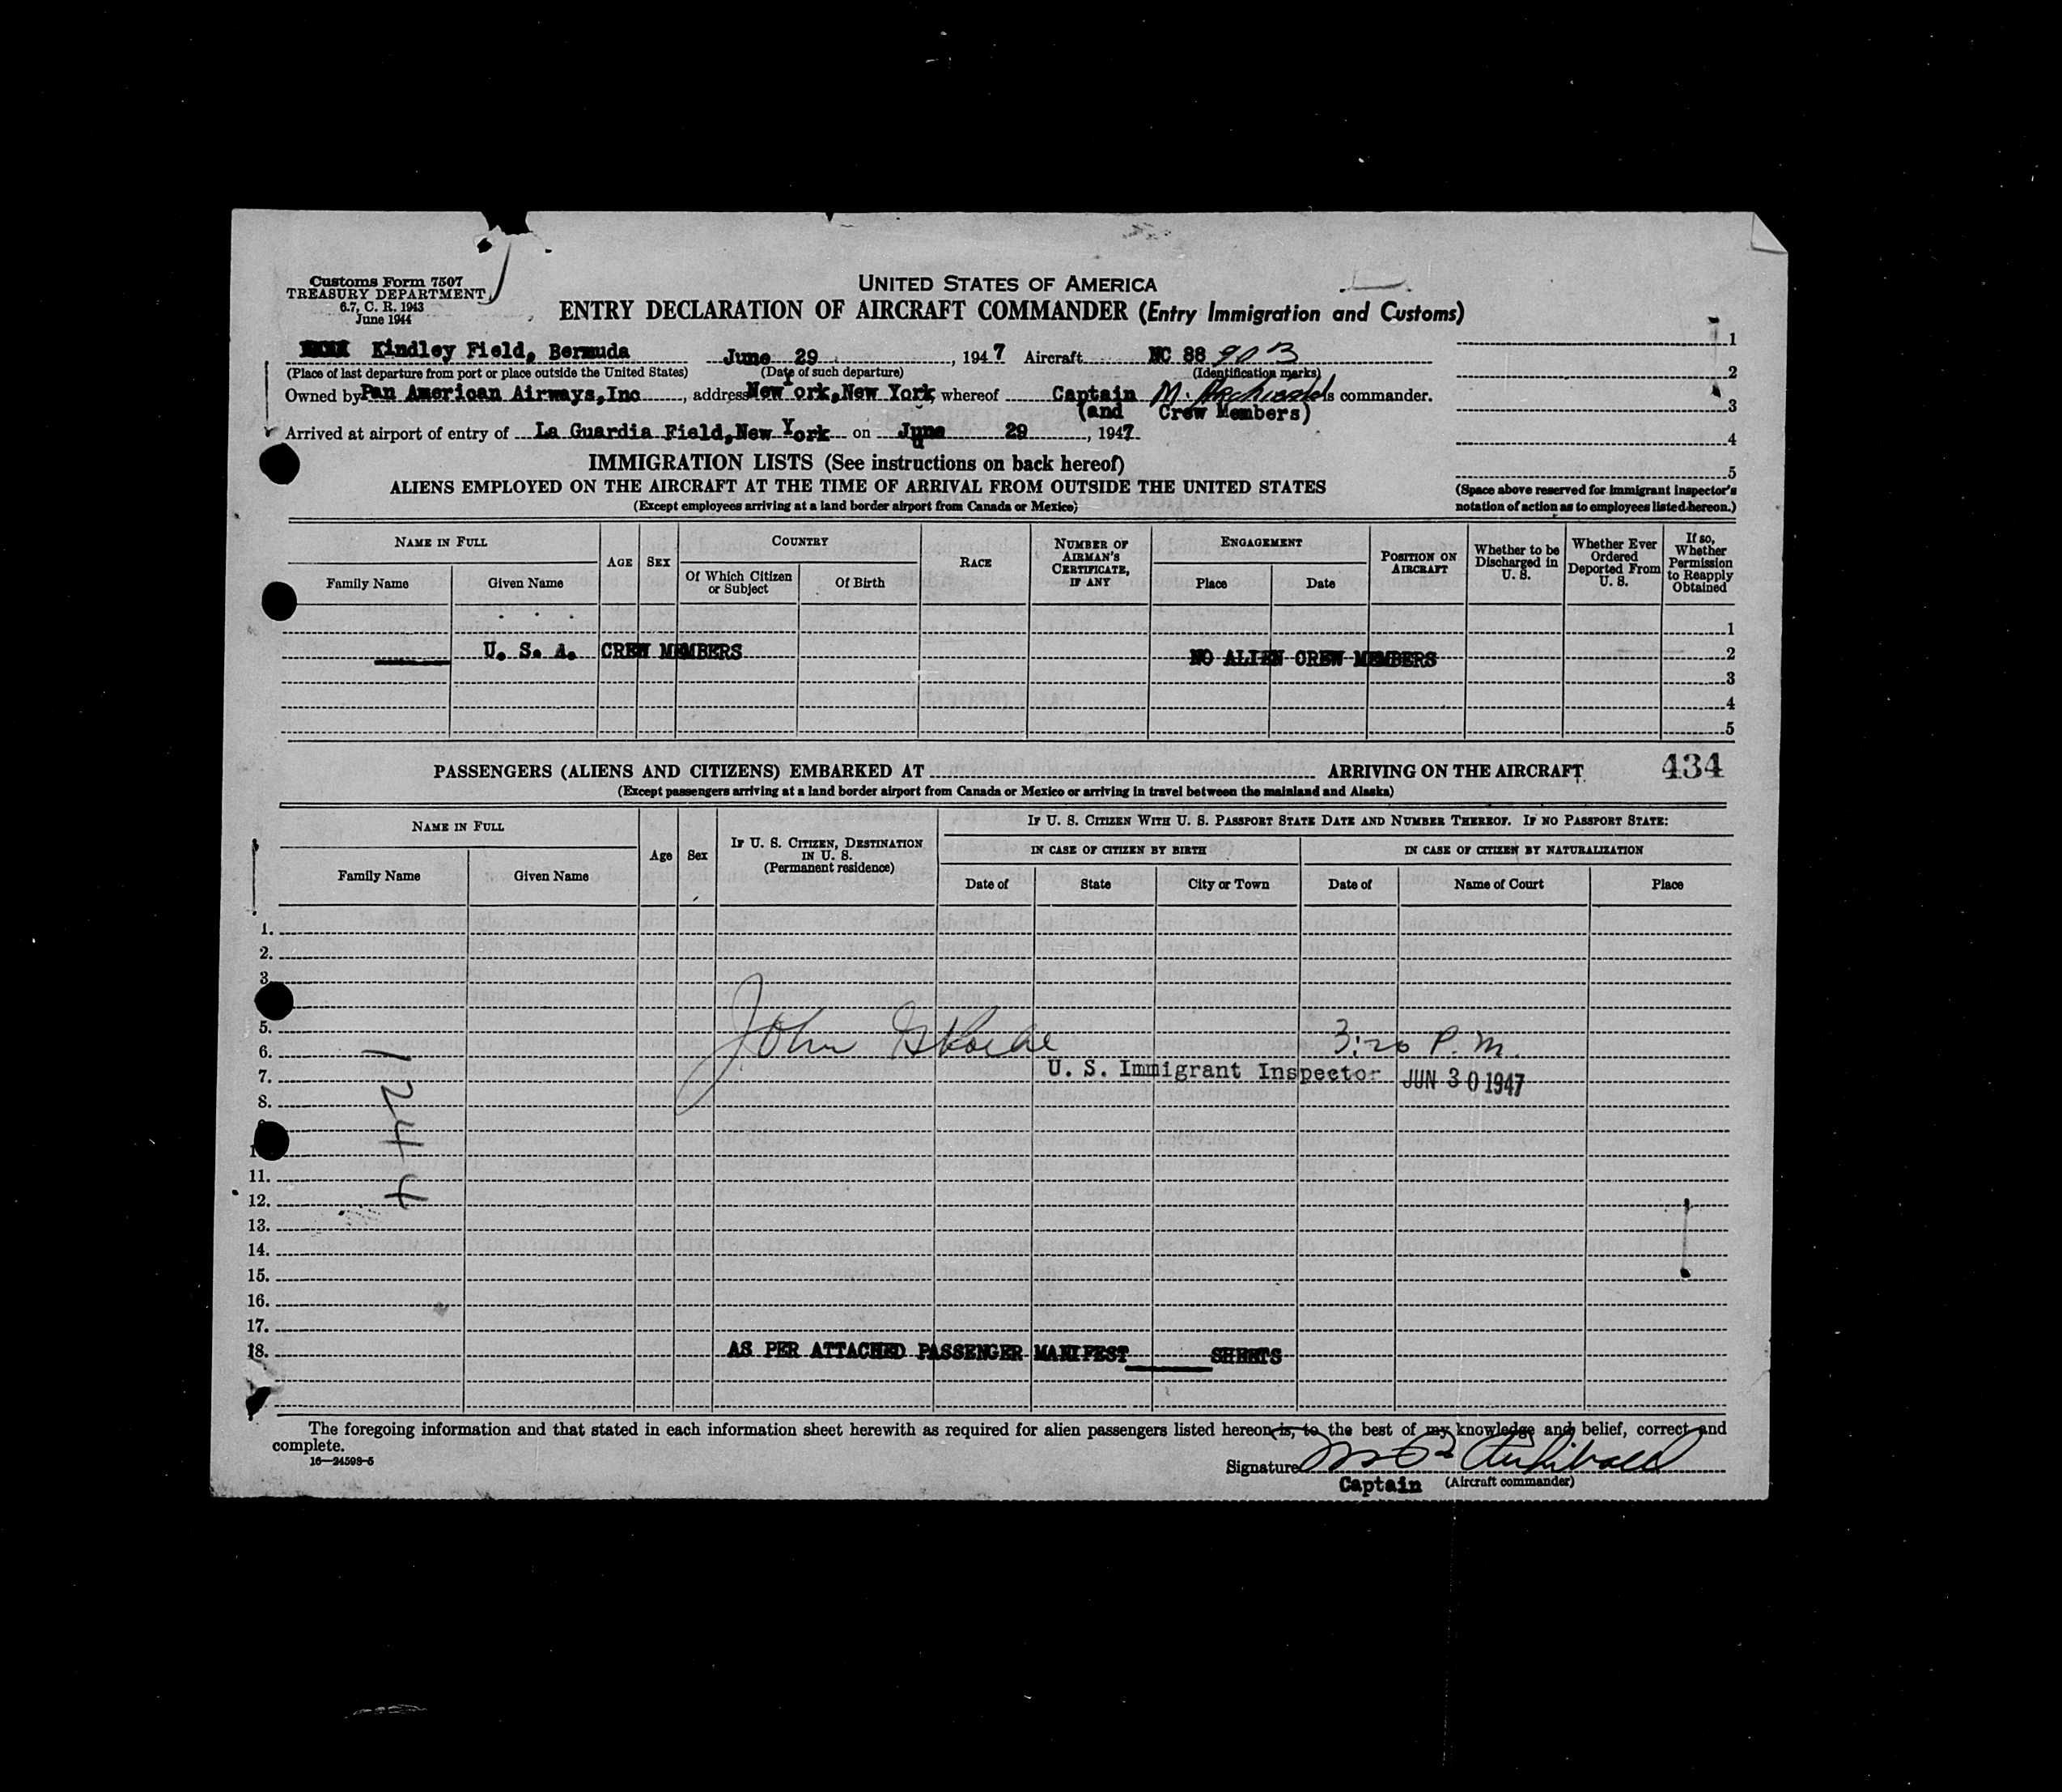 Customs Form 7507
TREASURY DEPARTMENT
6.7, C. R. 1943
June 1944
UNITED STATES OF AMERICA
ENTRY DECLARATION OF AIRCRAFT COMMANDER (Entry Immigration and Customs)
Kindley Field, Bermuda June 29, 1947 Aircraft NC 88903
(Place of last departure from port or place outside the United States) (Date of such departure) (Identification marks)
Owned by Pan American Airways, Inc, address New York, New York, whereof Captain M. Archibald is commander.
(and Crew Members)
Arrived at airport of entry of La Guardia Field, New York on June 29, 1947
1
2
3
4
5
(Space above reserved for immigrant inspector's
notation of action as to employees listed hereon.)
IMMIGRATION LISTS (See instructions on back hereof)
ALIENS EMPLOYED ON THE AIRCRAFT AT THE TIME OF ARRIVAL FROM OUTSIDE THE UNITED STATES
(Except employees arriving at a land border airport from Canada or Mexico)
NAME IN FULL
Family Name
Given Name
AGE
SEX
COUNTRY
Of Which Citizen
or Subject
Of Birth
RACE
NUMBER OF
AIRMAN'S
CERTIFICATE,
IF ANY
ENGAGEMENT
Place
Date
POSITION ON
AIRCRAFT
Whether to be
Discharged in
U. S.
Whether Ever
Ordered
Deported From
U. S.
If so,
Whether
Permission
to Reapply
Obtained
1
U. S. A. CREW MEMBERS NO ALIEN CREW MEMBERS 2
3
4
5
434
PASSENGERS (ALIENS AND CITIZENS) EMBARKED AT ARRIVING ON THE AIRCRAFT
(Except passengers arriving at a land border airport from Canada or Mexico or arriving in travel between the mainland and Alaska)
NAME IN FULL
Family Name
Given Name
Age
Sex
IF U. S. CITIZEN, DESTINATION
IN U. S.
(Permanent residence)
IF U. S. CITIZEN WITH U. S. PASSPORT STATE DATE AND NUMBER THEREOF. IF NO PASSPORT STATE:
IN CASE OF CITIZEN BY BIRTH
IN CASE OF CITIZEN BY NATURALIZATION
Date of
State
City or Town
Date of
Name of Court
Place
1.
2.
3.
5.
John 3:20 P.M.
6.
7. U. S. Immigrant Inspector JUN 30 1947
8.
1244
11.
12.
13.
14.
15.
16.
17.
18. AS PER ATTACHED PASSENGER MANIFEST SHEETS
The foregoing information and that stated in each information sheet herewith as required for alien passengers listed hereon is, to the best of my knowledge and belief, correct and
complete.
16—24598-5
Signature Archibald
Captain (Aircraft commander)